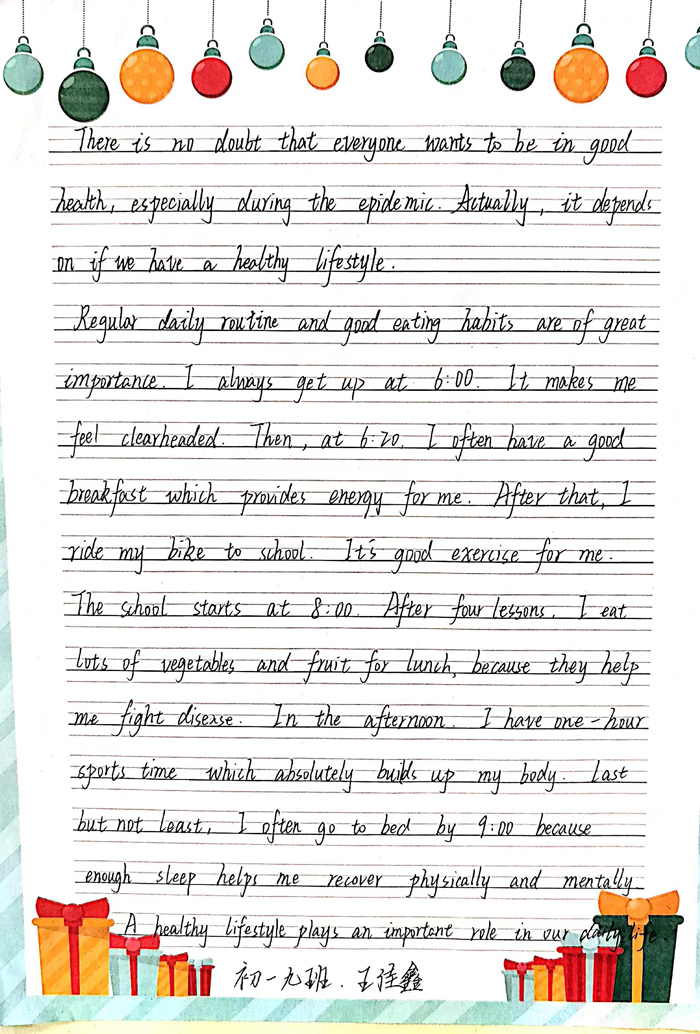 There is no doubt that everyone wants to be in good
health, especially during the epidemic. Actually, it depends
on if we have a healthy lifestyle.
Regular daily routine and good eating habits are of great
importance. I always get up at 6:00. It makes me
feel clearheaded. Then, at 6:20, I often have a good
breakfast which provides energy for me. After that, I
ride my bike to school. It's good exercise for me.
The school starts at 8:00. After four lessons. I eat
lots of vegetables and fruit for lunch, because they help
me fight disease. In the afternoon. I have one-hour
sports time which absolutely builds up my body. Last
but not least, I often go to bed by 9:00 because
enough sleep helps me recover physically and mentally.
A healthy lifestyle plays an important role in our daily life.
初一九班.王佳鑫